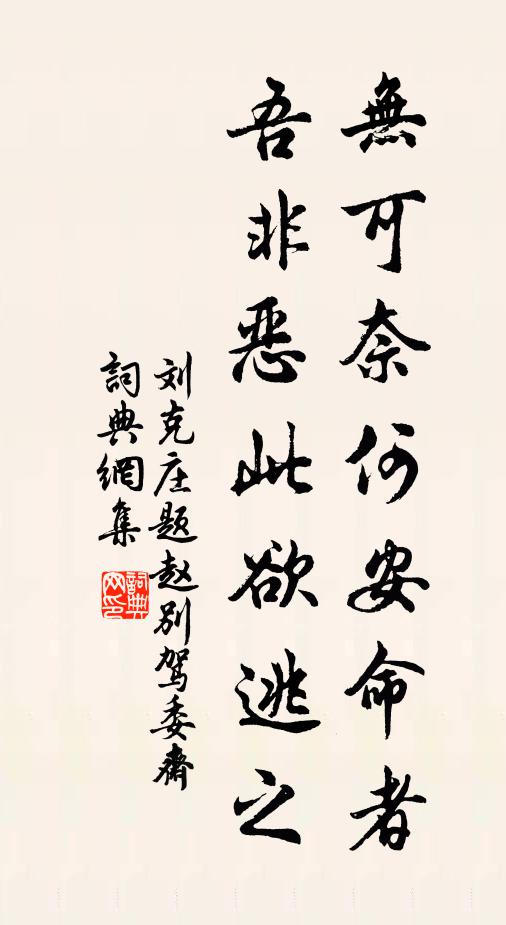 無可奈何安命者
吾非惡此欲逃之
刘克庄题赵别駕委齋
詞典網集
詞典網印